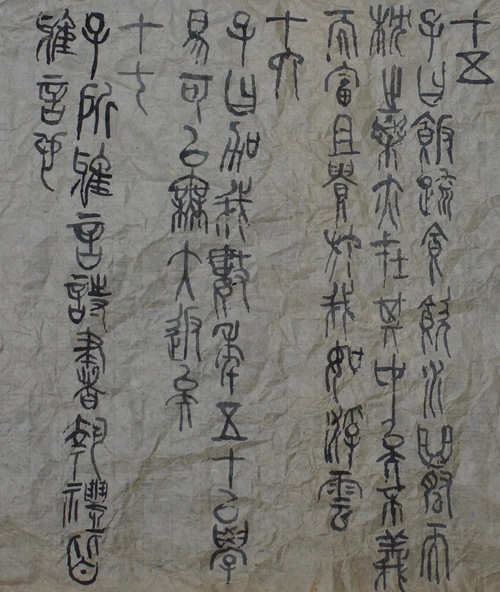 十五
子曰飯疏食飲水曲肱而
枕之樂亦在其中矣不義
而富且貴於我如浮雲
十六
子曰加我數年五十以學
易可以無大過矣
十七
子所雅言詩書執禮皆
雅言也